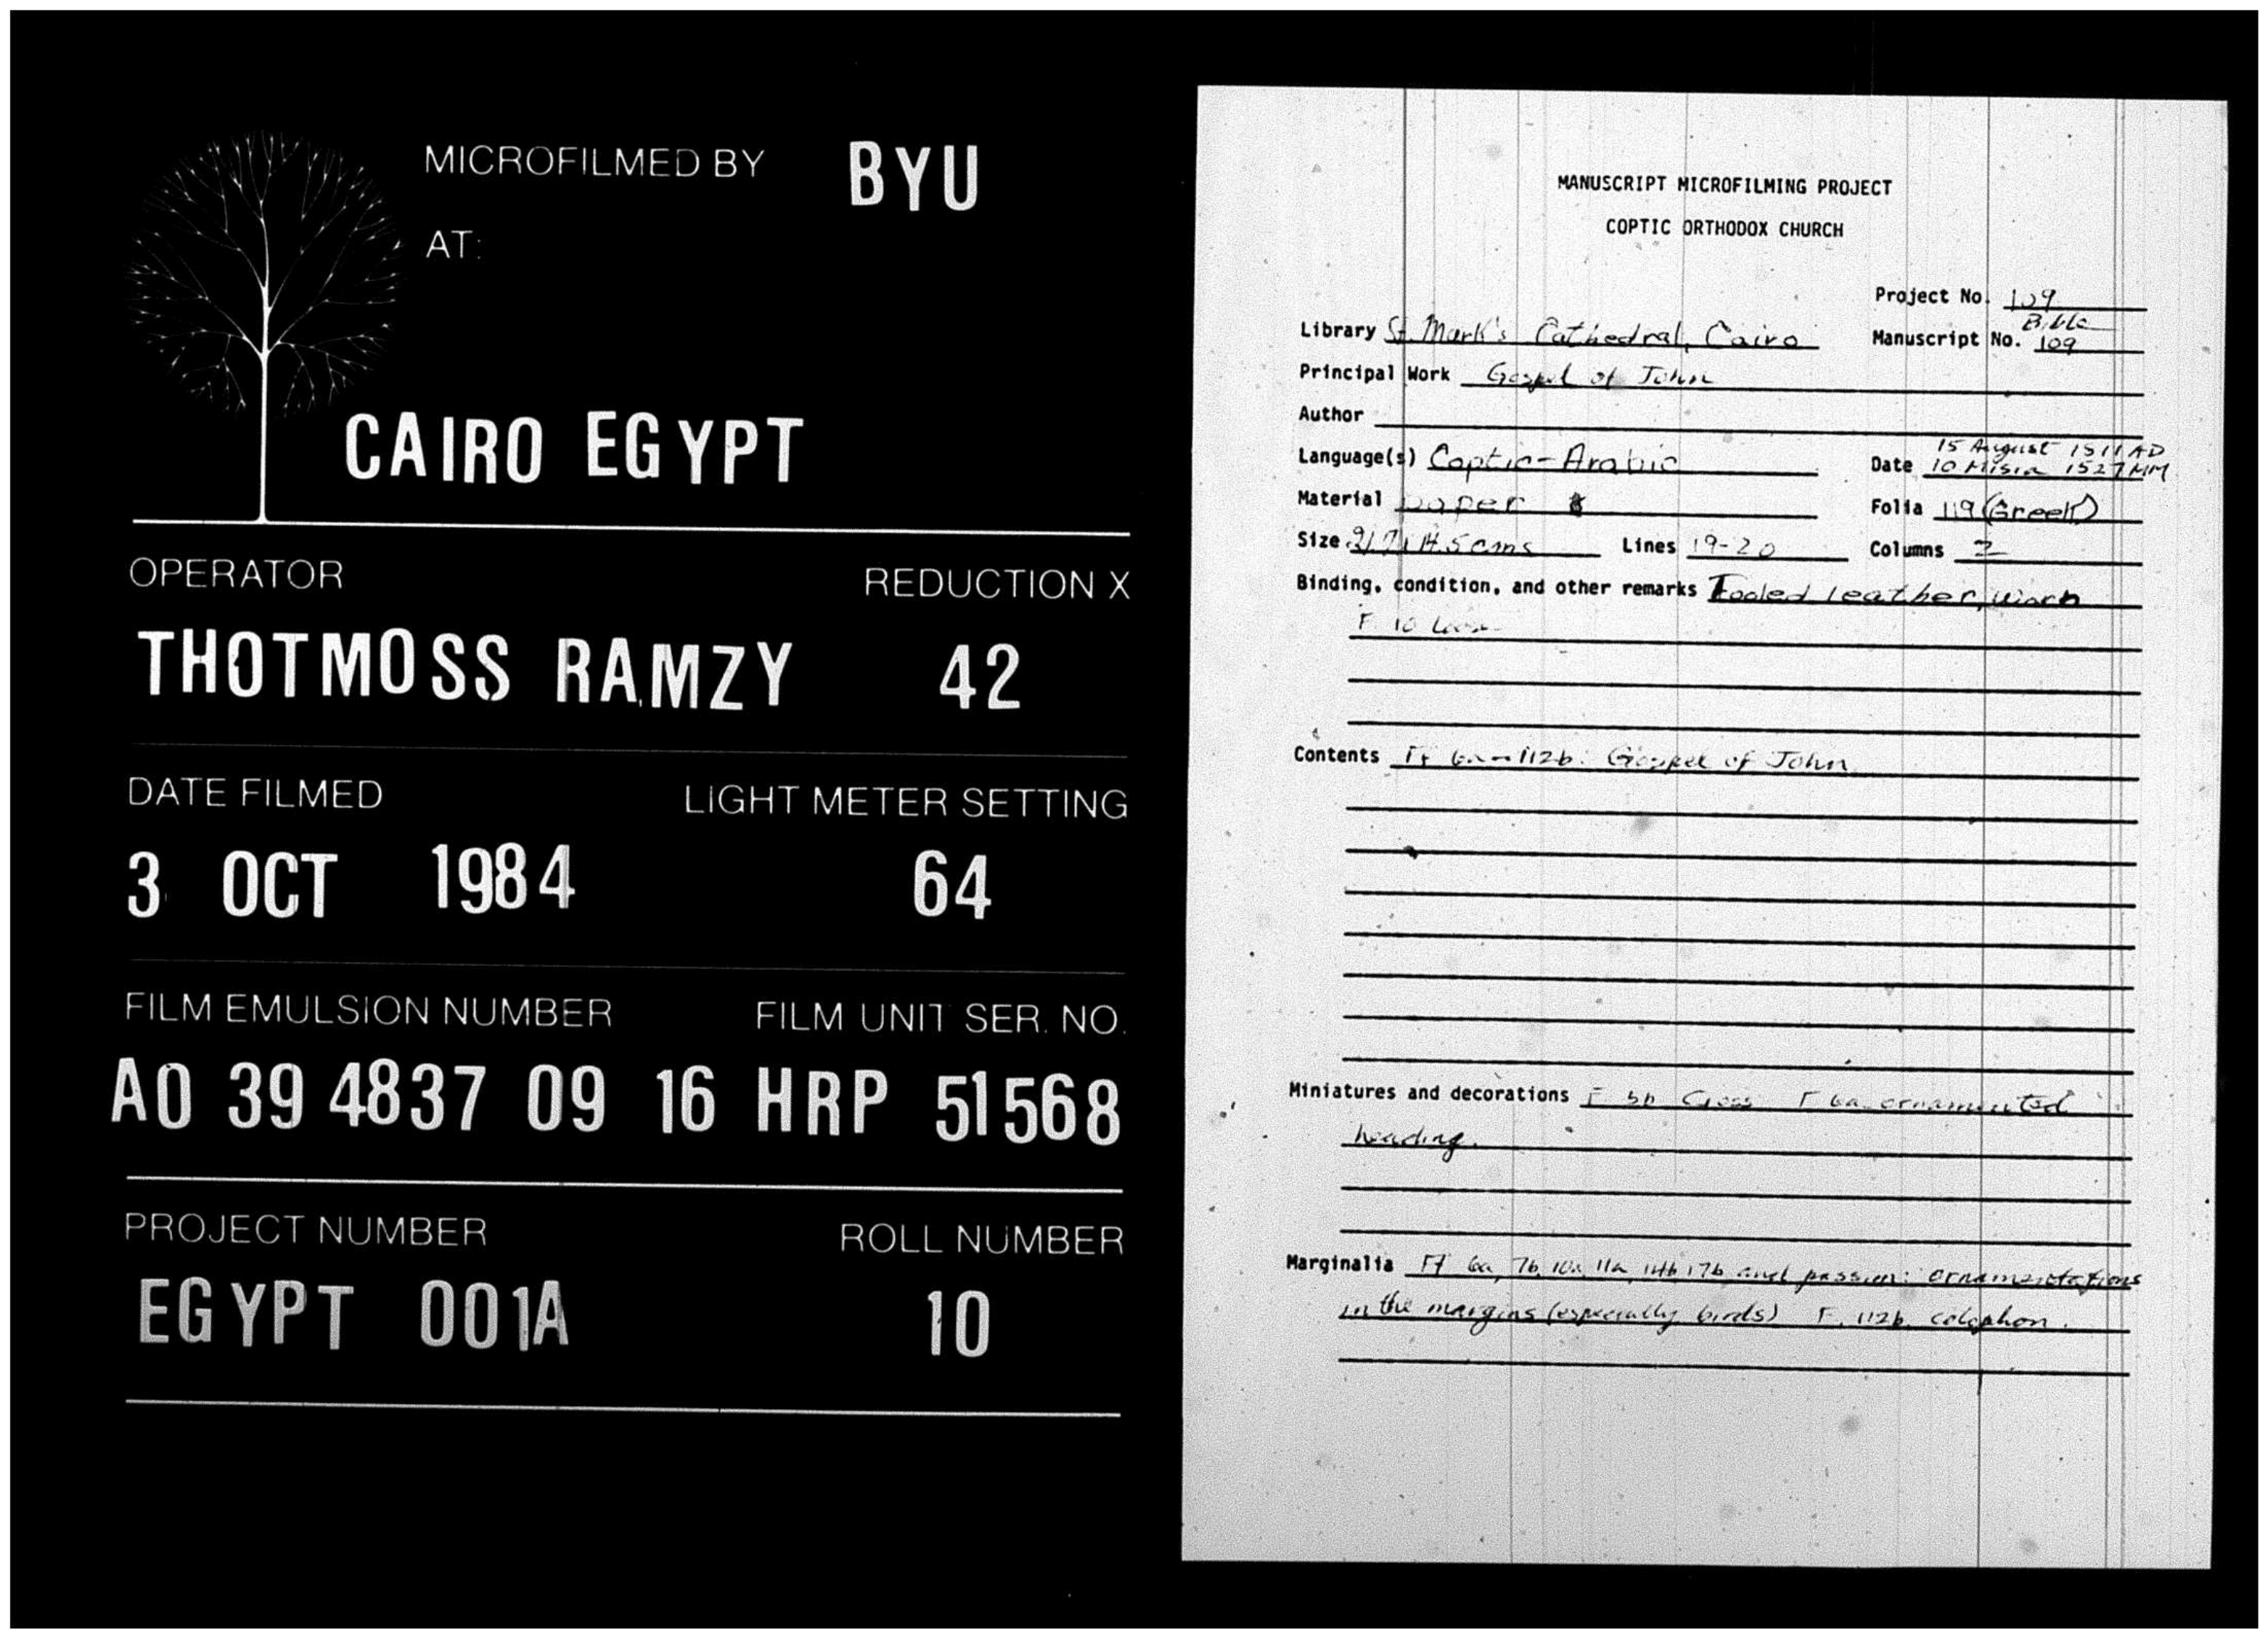 MICROFILMED BY BYU
AT:
CAIRO EGYPT
OPERATOR REDUCTION X
THOTMOSS RAMZY 42
DATE FILMED LIGHT METER SETTING
3 OCT 1984 64
FILM EMULSION NUMBER FILM UNIT SER. NO.
A0 39 4837 09 16 HRP 51568
PROJECT NUMBER ROLL NUMBER
EGYPT 001A 10
MANUSCRIPT MICROFILMING PROJECT
COPTIC ORTHODOX CHURCH
Project No. 109
Library St. Mark's Cathedral, Cairo Manuscript No. Bible 109
Principal Work Gospel of John
Author
Language(s) Coptic-Arabic Date 15 August 1511 AD
10 Misra 1527 MM
Material paper Folia 119 (Greek)
Size 14.5 cms Lines 19-20 Columns 2
Binding, condition, and other remarks Tooled leather, worn
F. 10 loose
Contents Ff 6a-112b: Gospel of John
Miniatures and decorations F 5b Cross F 6a ornamented
heading.
Marginalia Ff 6a, 7b, 10a, 11a, 14b 17b and passim: ornamentations
in the margins (especially birds) F. 112b colophon.